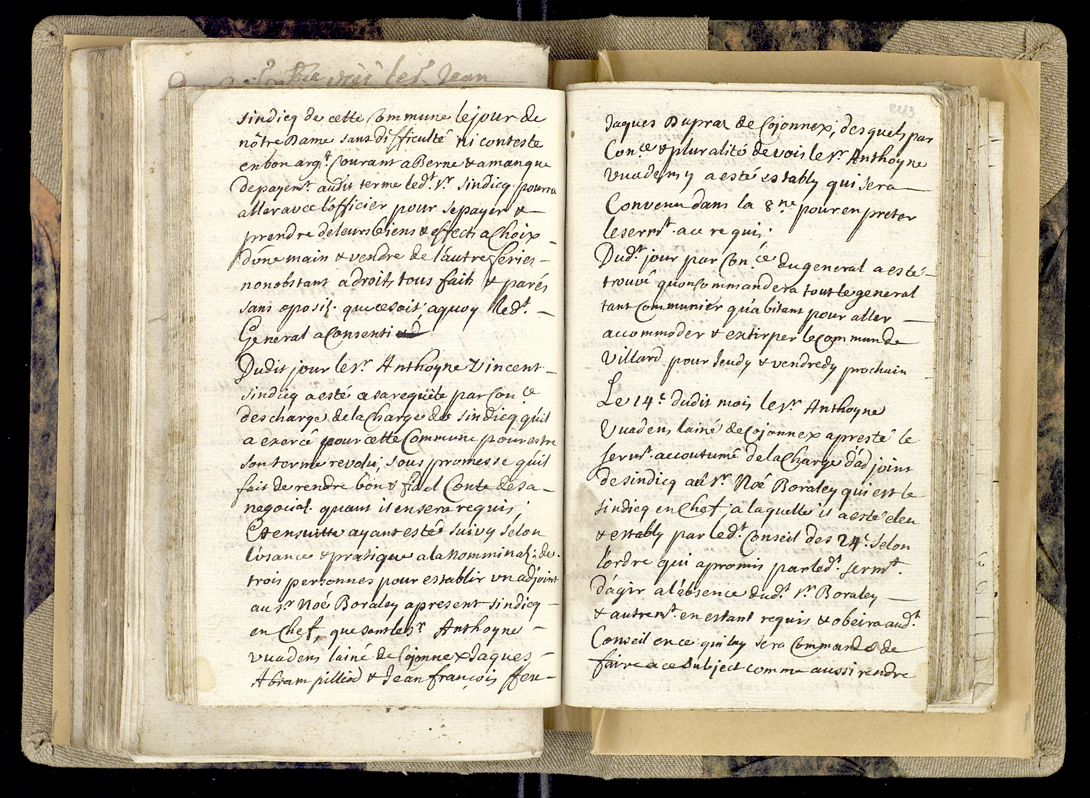 sindicq de cette Commune le jour de
nôtre Dame sans difficulté ni conteste
en bon argt. Courant a Berne & a manque
de payemt. audit terme ledt. Sr. Sindicq pourra
aller avec l'officier pour se payer &
prendre de leurs biens & effects a Choix
d'une main & vendre de l'autre feries
nonobstant a droits tous faits & parés
sans oposit. que ce soit aquoy ledt.
General a Consenti
Dudit jour le Sr. Anthoyne Vincent
sindicq a esté a sa reqüete par Conce
descharge de la Charge de sindicq qu'il
a exercé pour cette Commune pour estre
son terme revolu, sous promesse qu'il
fait de rendre bon & fidel Conte de sa
negociat. quant il en sera requis
Et ensuitte ayant esté suivy selon
l'usance & pratique a la nominat. de
trois personnes pour establir un adjoint
au Sr. Noé Boraley apresent sindicq
en Chef, que sont les Sr Anthoyne
Vuadens lainé de Cojonnex Jaques
Abram pilliod & Jean françois
Jaques Dupraz de Cojonnex, desquels par
Conce & pluralité de vois le Sr. Anthoyne
Vuadens y a esté estably qui sera
Convenu dans la 8ne. pour en preter
le sermt. au requis.
Dudt. jour par Conce du general a esté
trouvé qu'on Commandera tout le general
tant Communier qu'abitant pour aller
accommoder & extirper le Commun de
Villard pour Jeudy & vendredy prochain
Le 14e. dudit mois le Sr. Anthoyne
Vuadens lainé de Cojonnex a presté le
sermt. accoutumé de la Charge d'adjoint
de sindicq au Sr. Noé Boraley qui est le
sindicq en Chef a laquelle il a esté eleu
& estably par ledt. Conseil des 24e. selon
l'ordre qui a promis par ledt. sermt.
d'agir a l'absence dudt. Sr. Boraley
& autremt. en estant requis & obeir audt.
Conseil en ce qui luy sera Commandé de
faire a ce subject comme aussi rendre